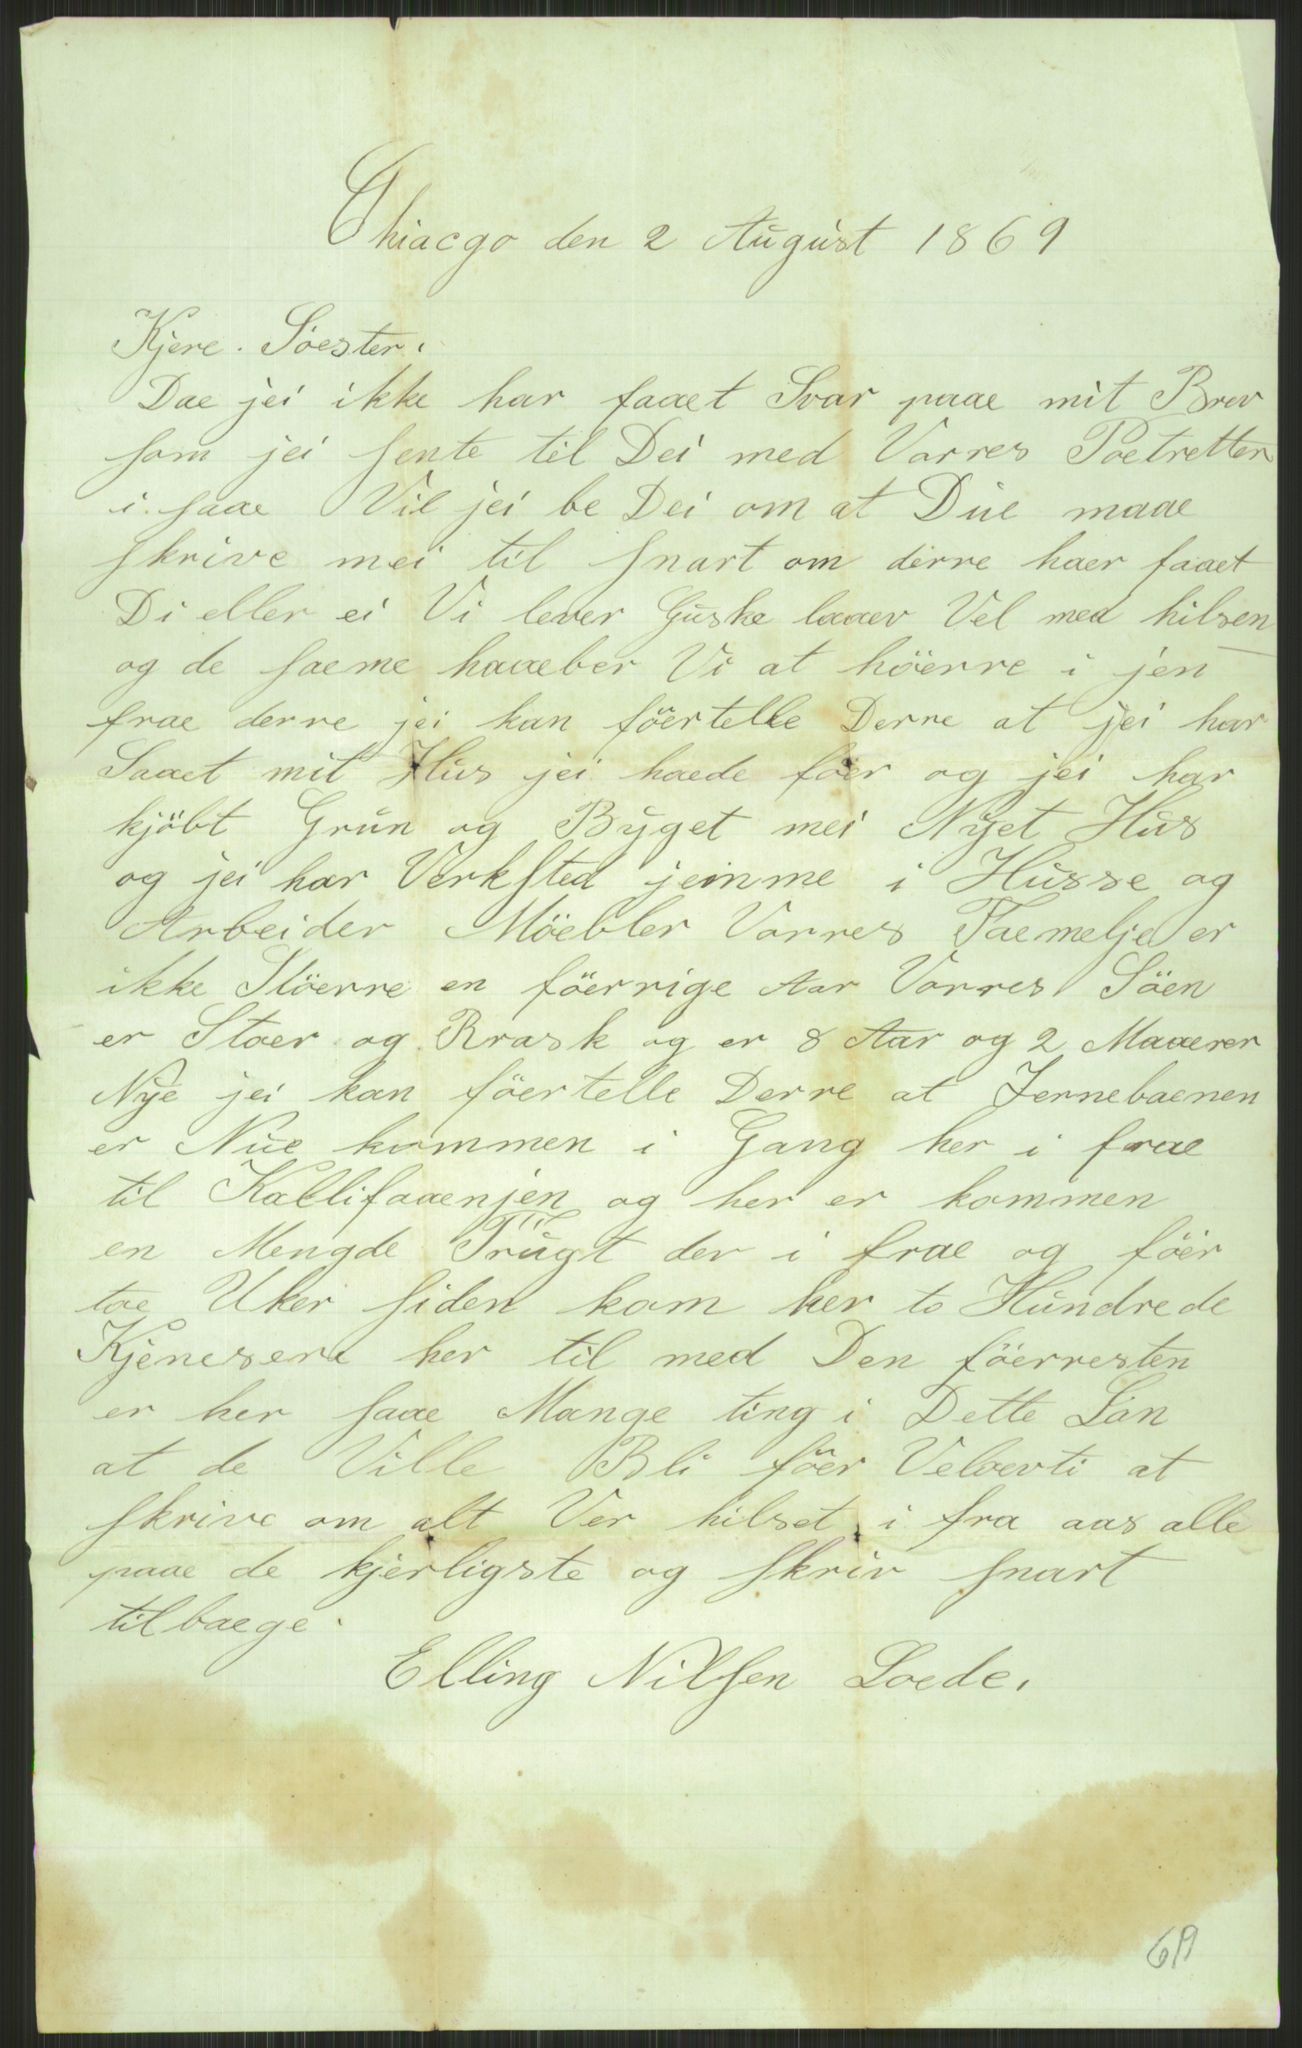 Chiacgo den 2 August 1869
Kjere. Söester.
Dae jei ikke har faaet Svar paae mit Brev
som jei sente til Dei med Varres Poetretter
i saae Vil jei be Dei om at Dúe maae
skrive mei til snart om derre haer faaet
Di eller ei Vi lever Guske laaev Vel med hilsen
og de saeme haaeber Vi at höerre i jen
frae derre jei kan föertelle Derre at jei har
Saaet mit Hus jei haede föer og jei har
kjöbt Grun og Byget mei Nyet Hus
og jei har Verksted jeimme i Husse og
Arbeider Möebler Varres Faemelje er
ikke Stöerre en föerrige Aar Varres Söen
er Stoer og Rrask og er 8 Aar og 2 Maaerer
Nye jei kan föertelle Derre at Jernebaenen
er Nue kommen i Gang her i frae
til Kallifaaenjen og her er kommen
en Mengde Frugt der i frae og föer
toe Uker siden kom her to Hundrede
Kjenesere her til med Den föerresten
er her saae Mange ting i Dette Lan
at de Ville Bli föer Veloerti at
skrive om alt Ver hilset i fra aas alle
paae de kjerligste og skriv snart
tilbaege.
Elling Nilsen Loede.
69